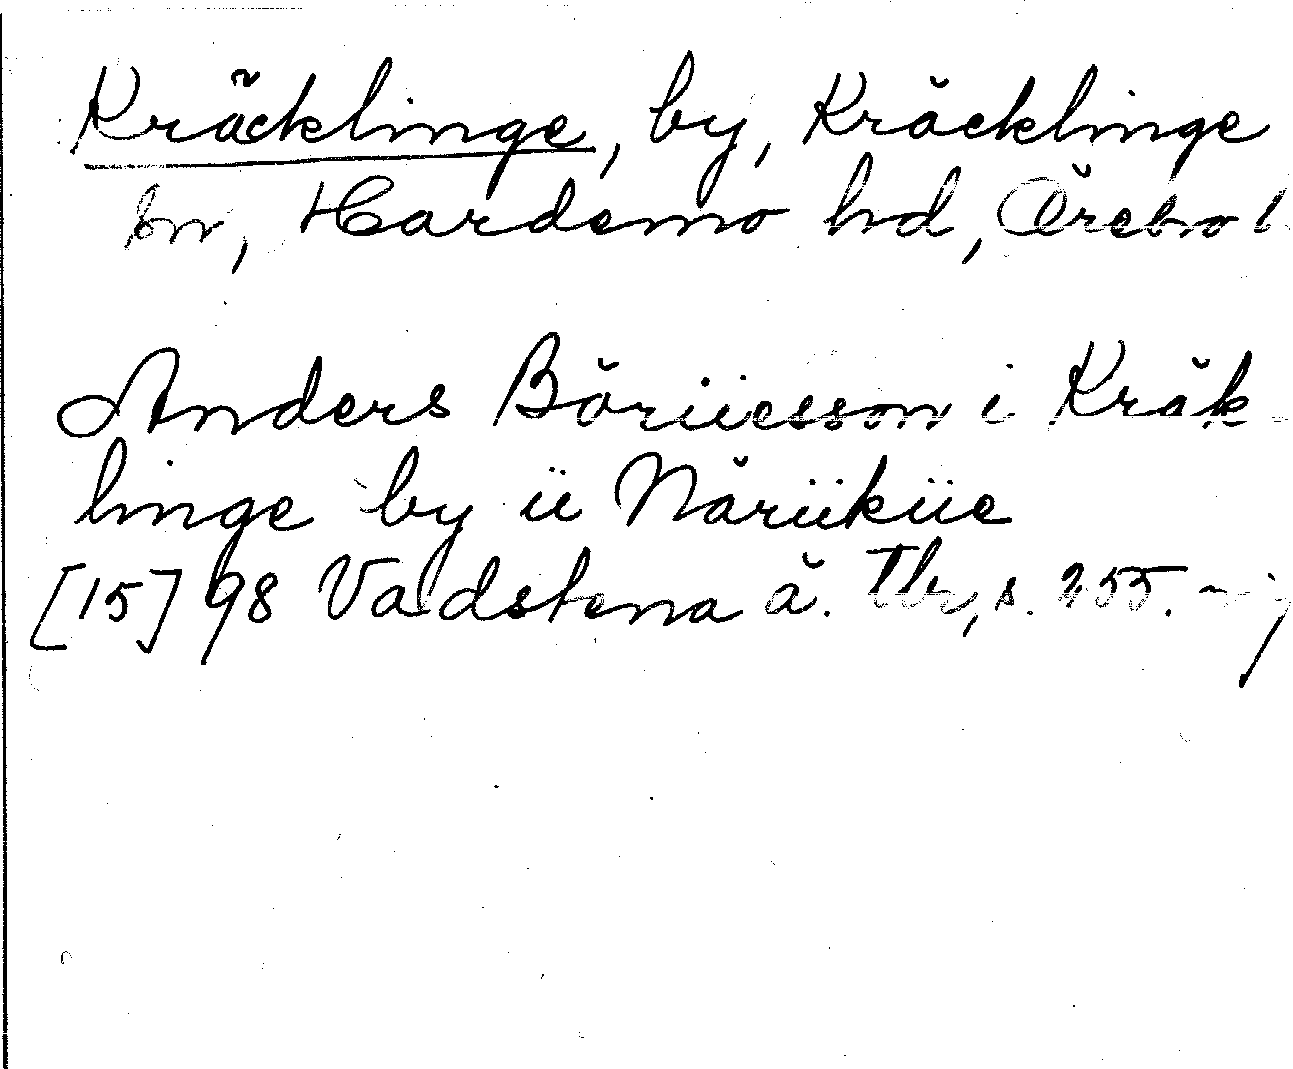 Kräcklinge, by, Kräcklinge
sn, Hardemo hd, Örebro l
Anders Böriiesson i Kräk-
linge by ii Näriikiie
[15]98 Vadstena ä. Tbr, s. 255.